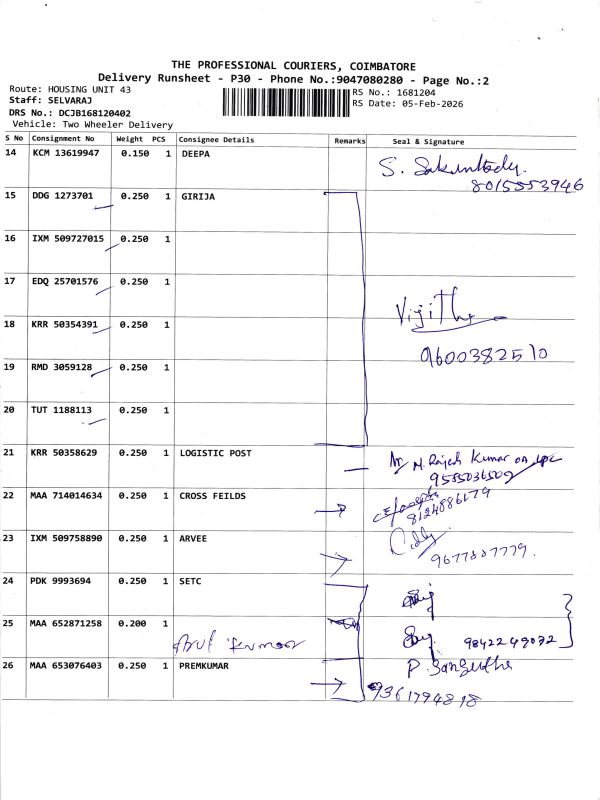 THE PROFESSIONAL COURIERS, COIMBATORE
Delivery Runsheet - P30 - Phone No.:9047080280 - Page No.:2
Route: HOUSING UNIT 43
RS No.: 1681204
Staff: SELVARAJ
RS Date: 05-Feb-2026
DRS No.: DCJB168120402
Vehicle: Two Wheeler Delivery
S No Consignment No Weight PCS Consignee Details Remarks Seal & Signature
14 KCM 13619947 0.150 1 DEEPA S.
8015553946
15 DDG 1273701 0.250 1 GIRIJA
16 IXM 509727015 0.250 1
17 EDQ 25701576 0.250 1
18 KRR 50354391 0.250 1 Vijitha
9600382510
19 RMD 3059128 0.250 1
20 TUT 1188113 0.250 1
21 KRR 50358629 0.250 1 LOGISTIC POST M. Rajesh Kumar
22 MAA 714014634 0.250 1 CROSS FEILDS
8124886179
23 IXM 509758890 0.250 1 ARVEE
9677807779.
24 PDK 9993694 0.250 1 SETC
25 MAA 652871258 0.200 1
Arul Kumar 9842249032
26 MAA 653076403 0.250 1 PREMKUMAR P. Sangeetha
9361794818